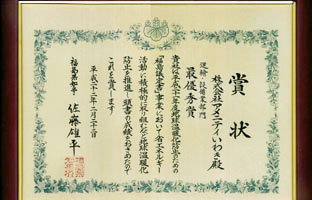 賞状
株式会社アメニティいわき殿
運輸・設備業部門
最優秀賞
貴社は平成二十二年度地球温暖化防止のための
「福島議定書」事業において省エネルギー
活動に積極的に取り組むなど地球温暖化
防止を推進し頭書の成績をおさめたので
これを賞します
平成二十三年二月二十二日
福島県知事 佐藤雄平